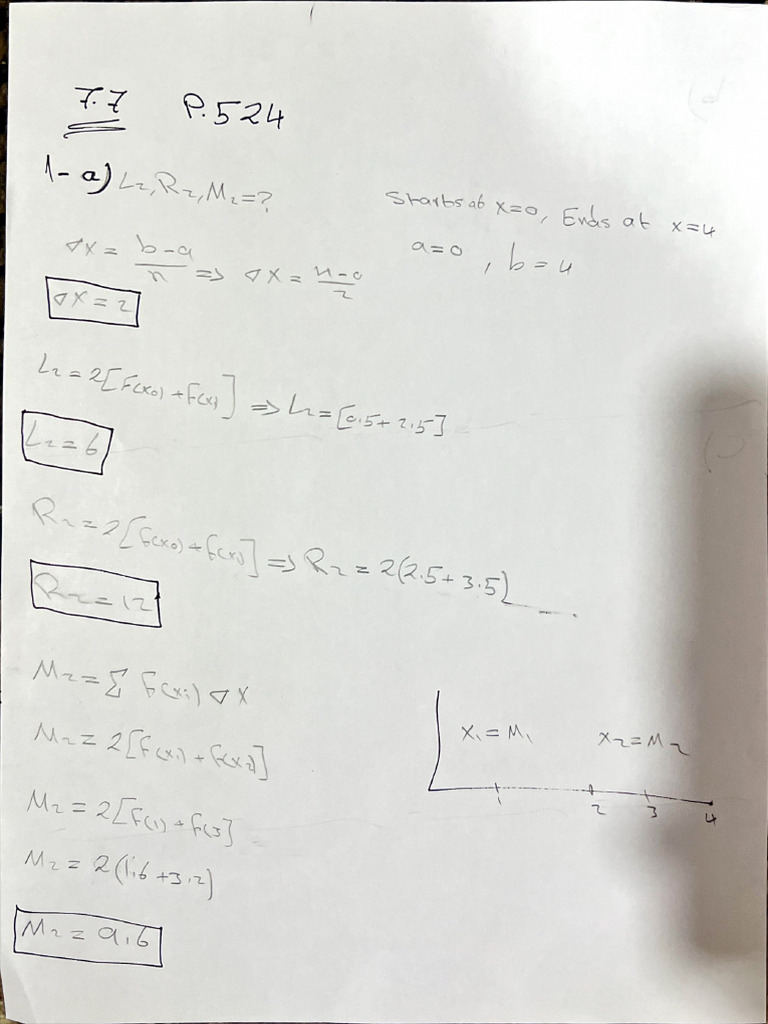 7.7 P.524
1-a) L2, R2, M2 = ?
Starts at x=0, Ends at x=4
a=0 , b=4
∇x = b-a/n => ∇x = 4-0/2
∇x = 2
L2 = 2[f(x0) + f(x1)] => L2 = [0.5 + 2.5]
L2 = 6
R2 = 2[f(x0) + f(x1)] => R2 = 2(2.5 + 3.5)
R2 = 12
M2 = Σ f(xi) ∇x
M2 = 2[f(x1) + f(x2)]
M2 = 2[f(1) + f(3)]
M2 = 2(1.6 + 3.2)
M2 = 9.6
x1 = M1 x2 = M2
1 2 3 4